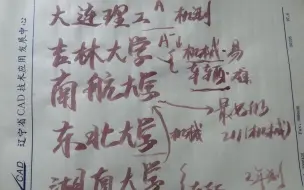 大连理工 A 机测
吉林大学 A- 机械-易
车辆-难
南航大学
东北大学 机械 最好的
211(机械)
湖南大学
辽宁省CAD技术应用发展中心
CAD